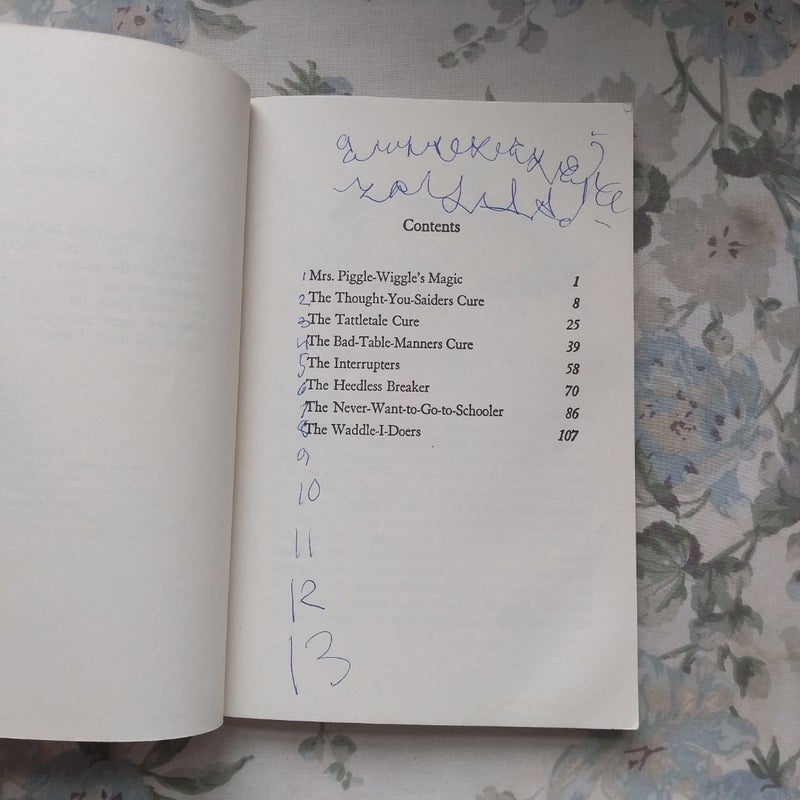 Contents
1 Mrs. Piggle-Wiggle's Magic 1
2 The Thought-You-Saiders Cure 8
3 The Tattletale Cure 25
4 The Bad-Table-Manners Cure 39
5 The Interrupters 58
6 The Heedless Breaker 70
7 The Never-Want-to-Go-to-Schooler 86
8 The Waddle-I-Doers 107
9
10
11
12
13